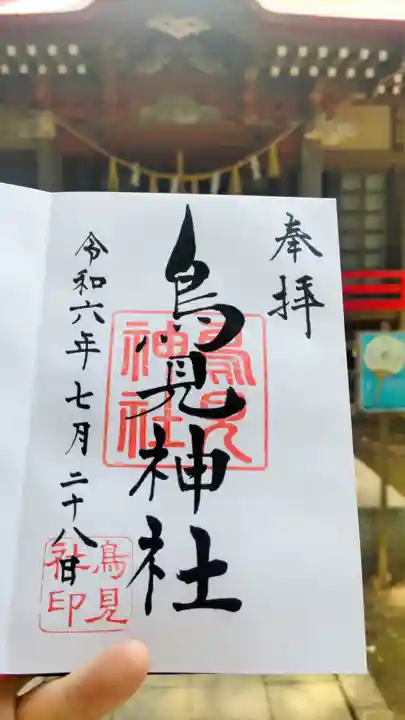 奉拝
鳥見神社
令和六年七月二十八日
鳥見神社
鳥見社印